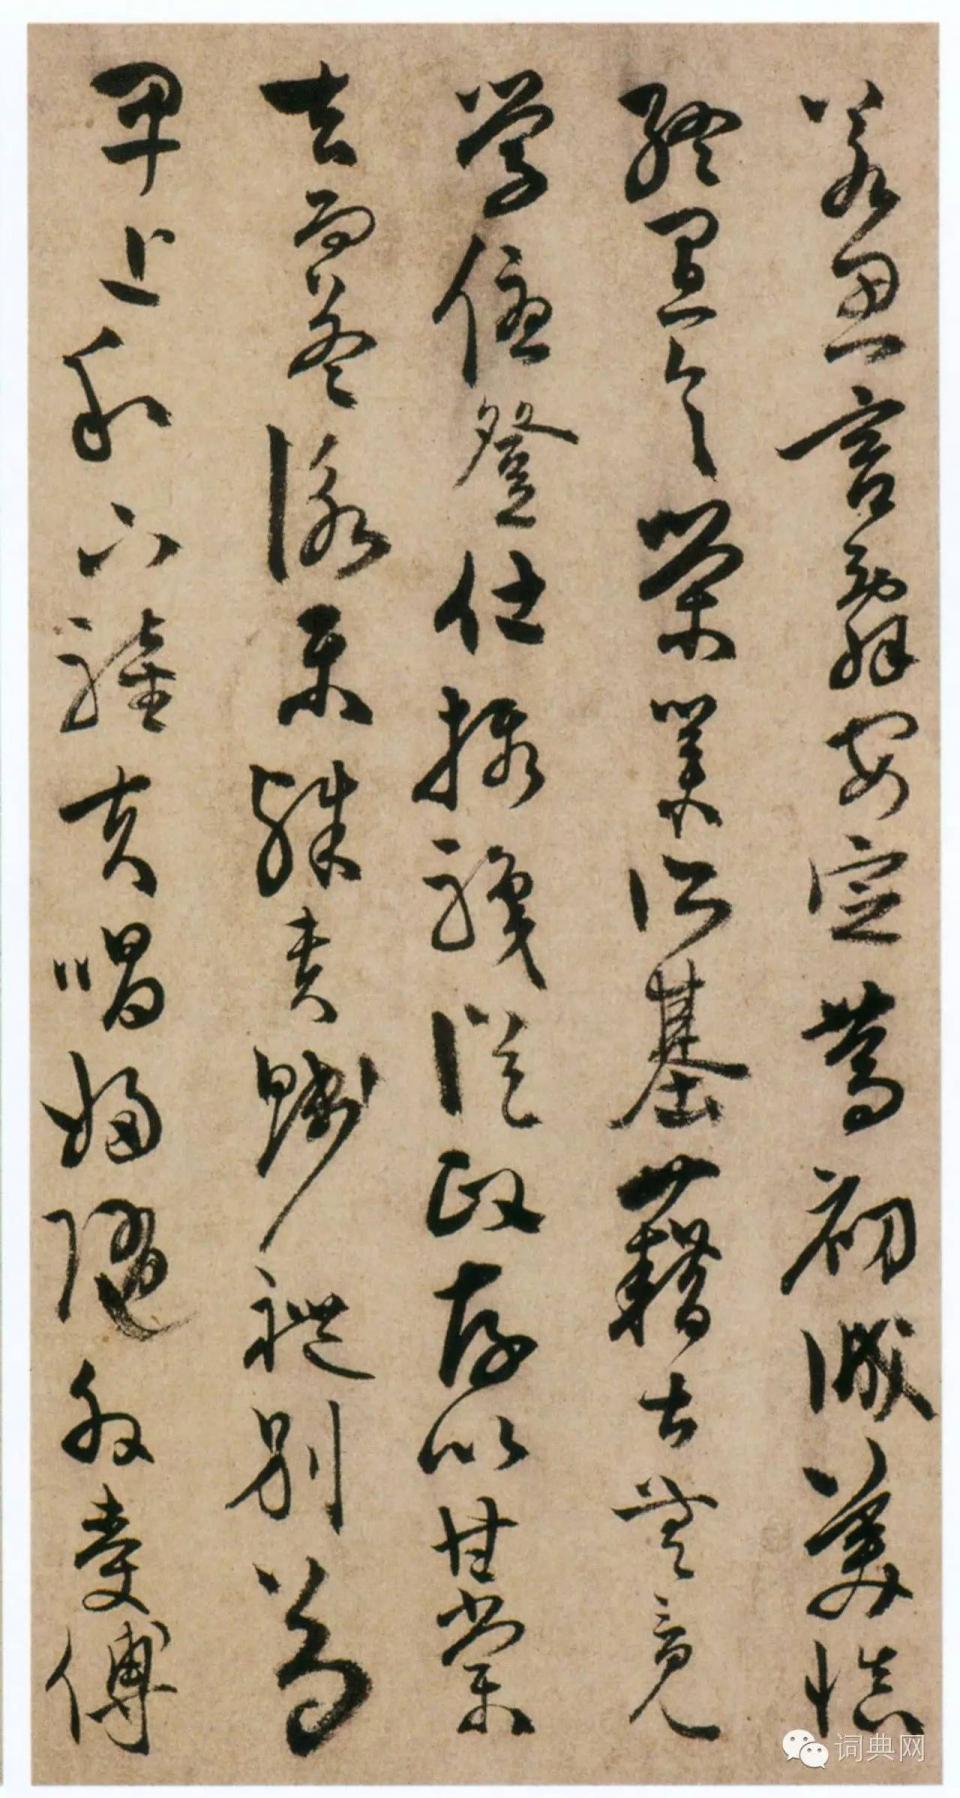 若思言辭安定篤初誠美慎
終宜令榮業所基藉甚無竟
學優登仕攝職從政存以甘棠
去而益詠樂殊貴賤禮別尊
卑上和下睦夫唱婦隨外受傅
词典网